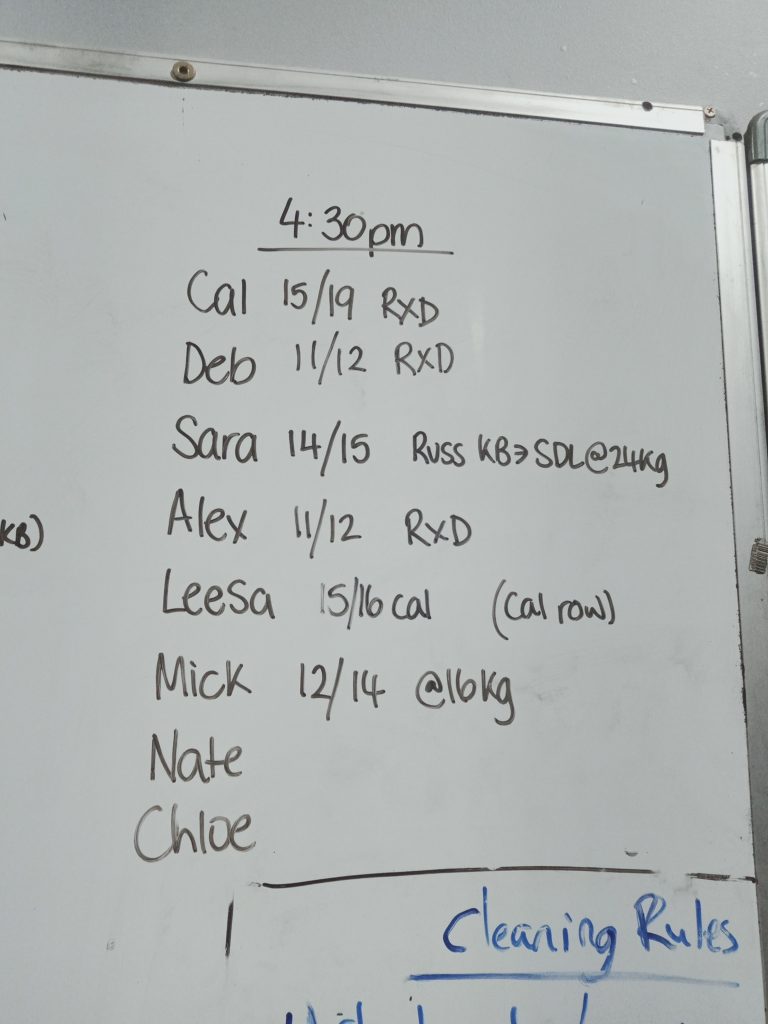 4:30pm
Cal 15/19 RXD
Deb 11/12 RXD
Sara 14/15 Russ KB→SDL@24kg
KB)
Alex 11/12 RXD
Leesa 15/16 cal (Cal row)
Mick 12/14 @16kg
Nate
Chloe
Cleaning Rules